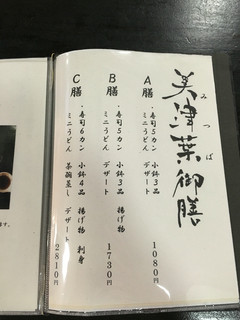 美津葉御膳
みつば
A膳
・寿司5カン 小鉢3品
ミニうどん デザート
1080円
B膳
・寿司5カン 小鉢3品 揚げ物
ミニうどん デザート
1730円
C膳
・寿司6カン 小鉢4品 揚げ物 刺身
ミニうどん 茶碗蒸し デザート
2810円
ます。